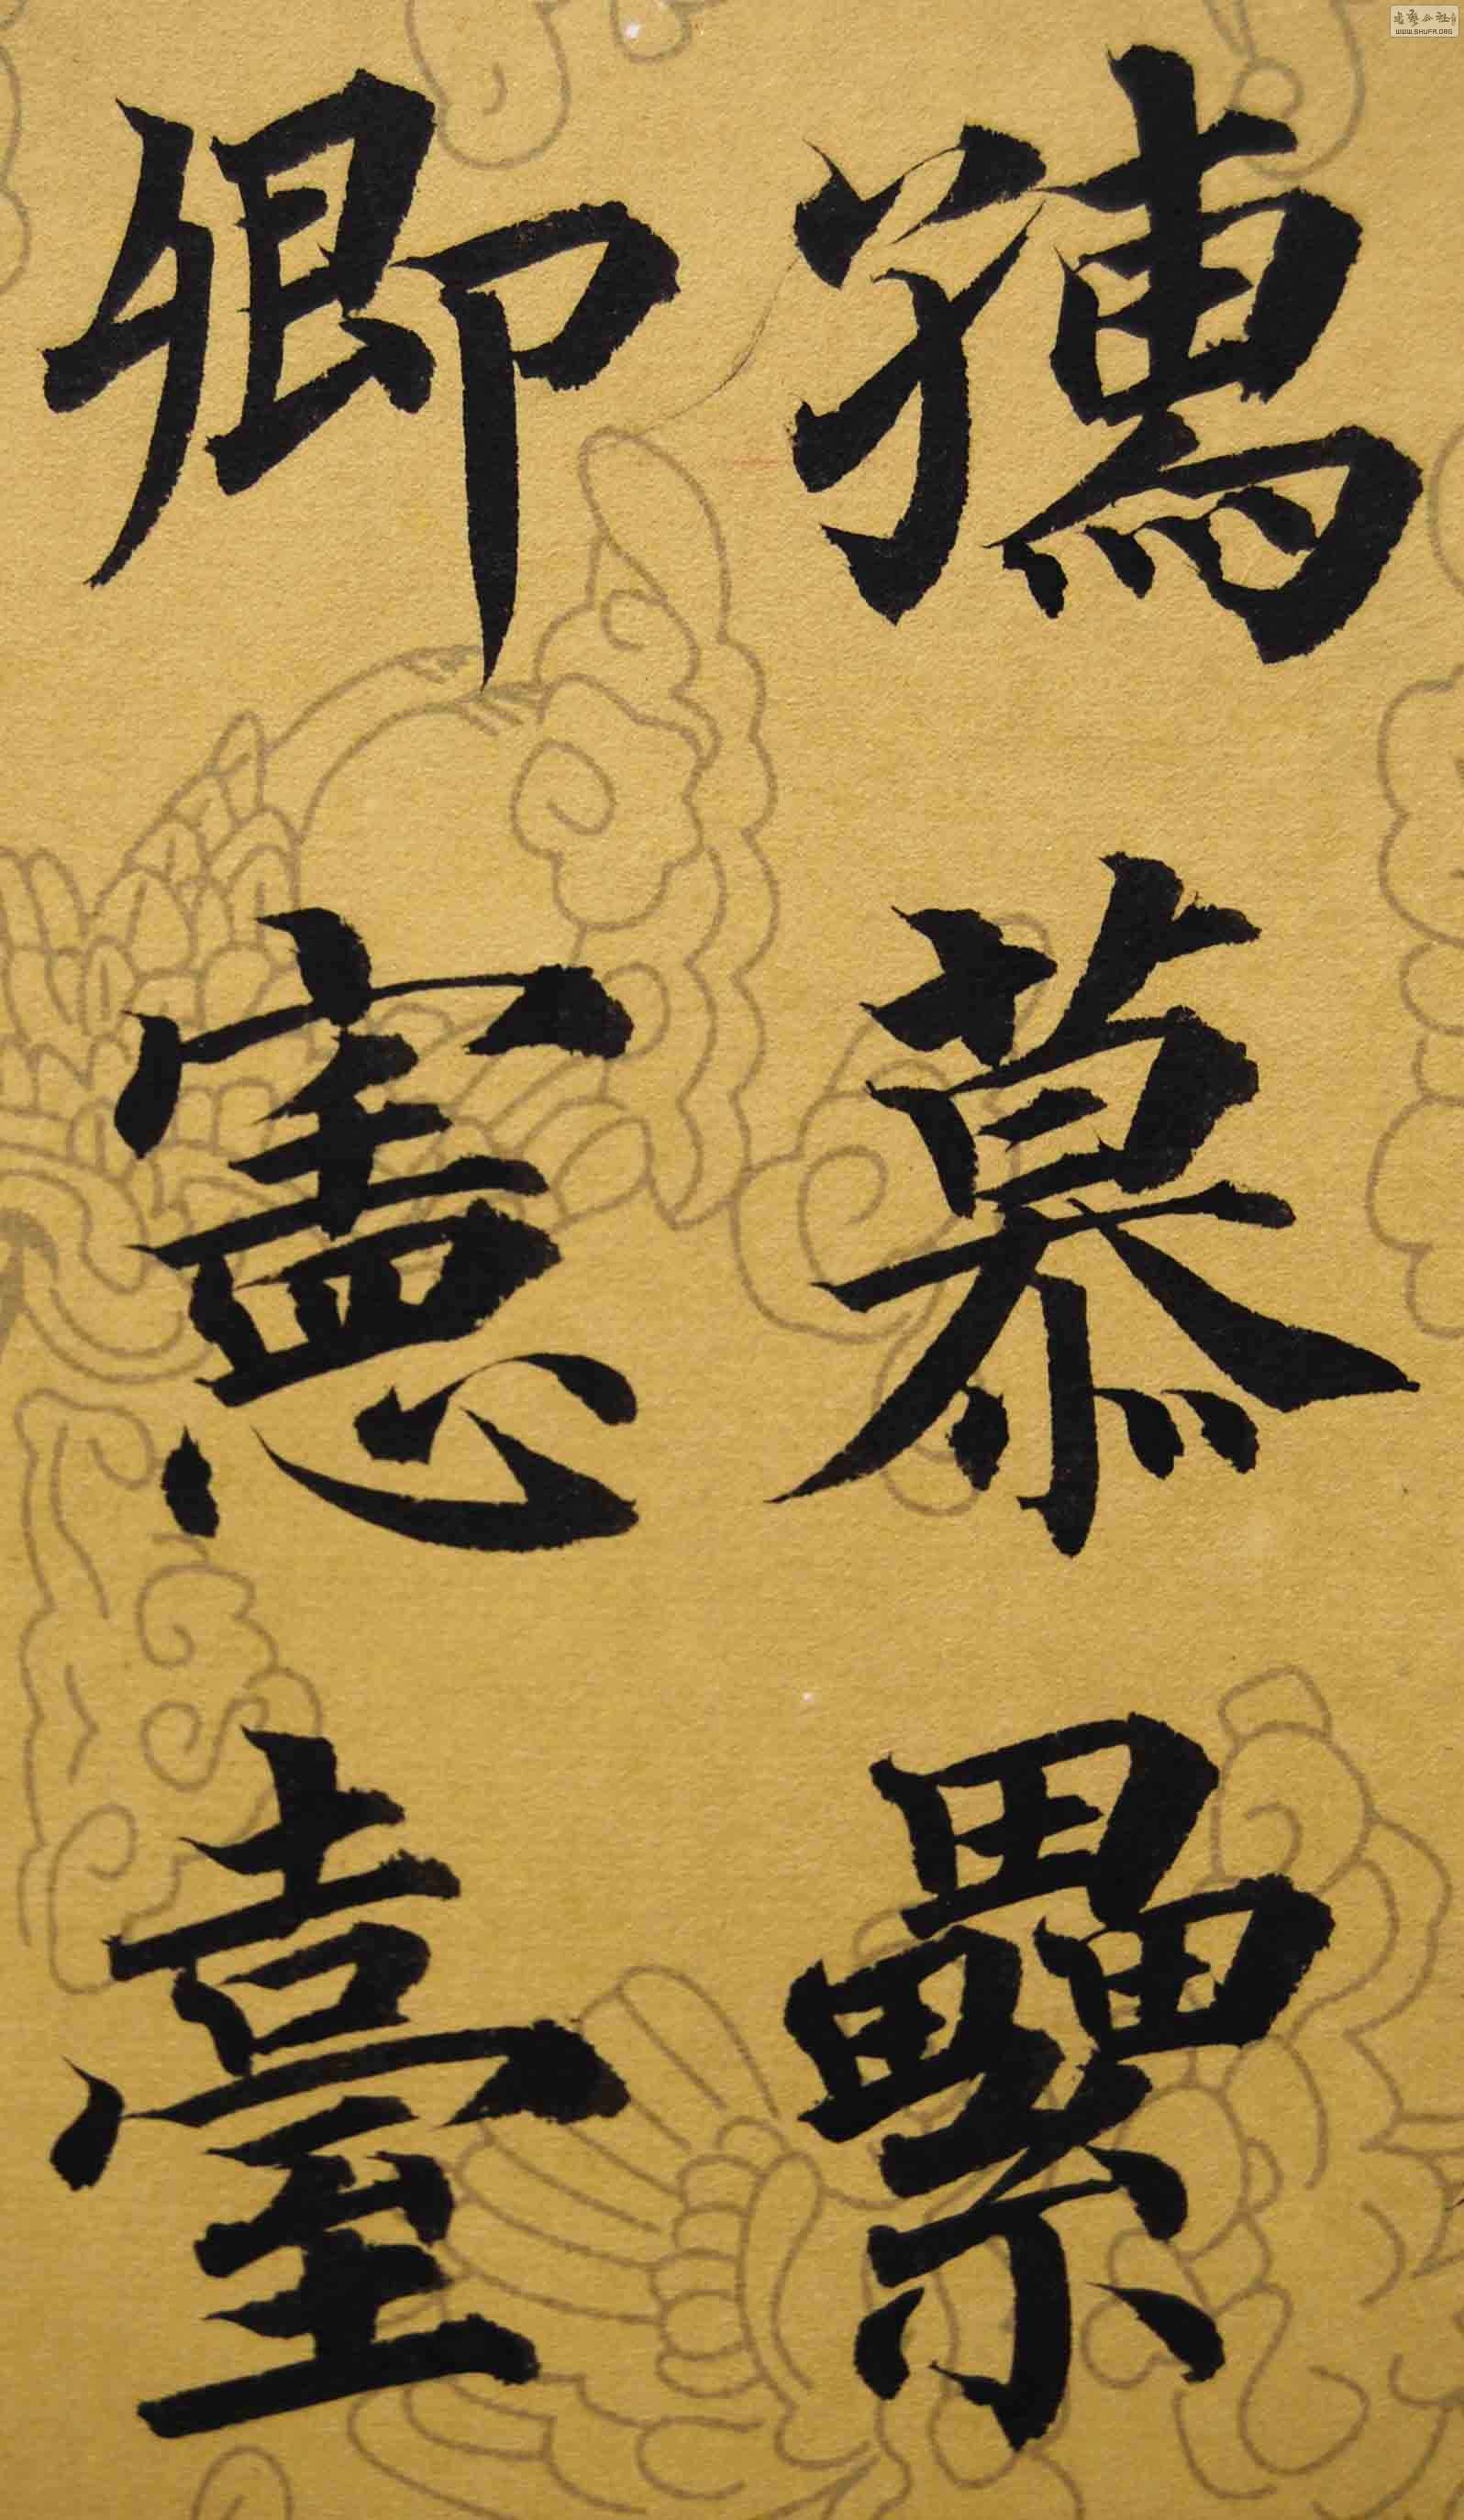 慕纍
卿憲臺
书艺公社
WWW.SHUFA.ORG